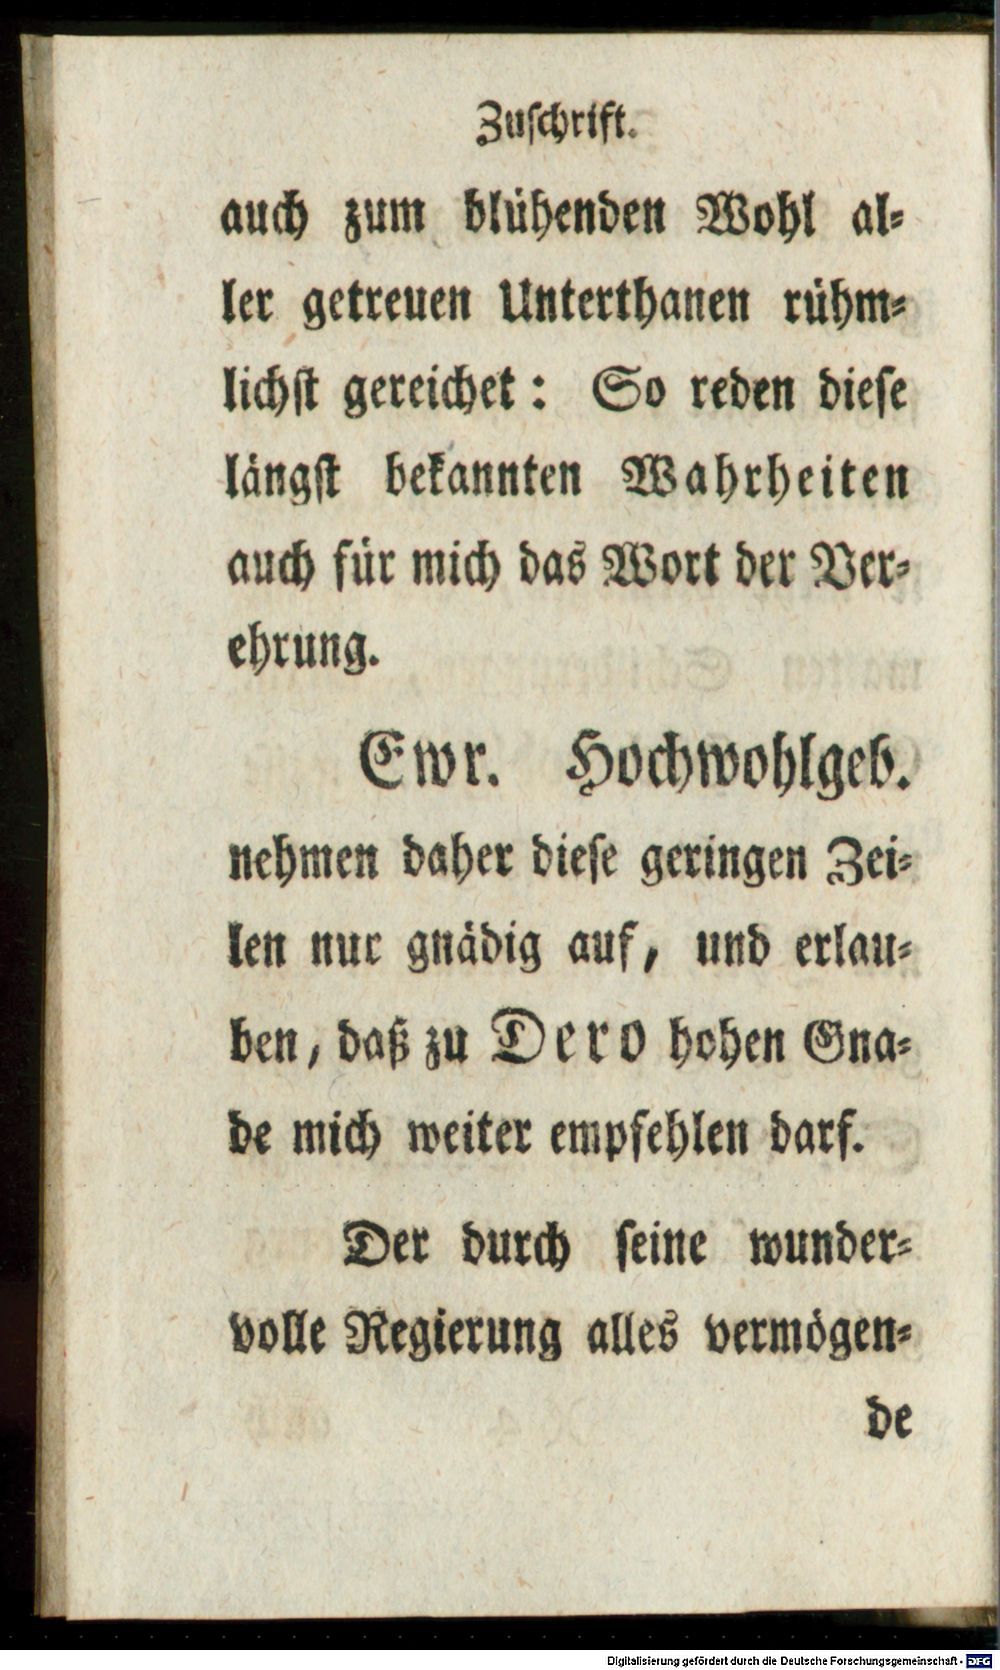 Zuschrift.
auch zum blühenden Wohl al-
ler getreuen Unterthanen rühm-
lichst gereichet: So reden diese
längst bekannten Wahrheiten
auch für mich das Wort der Ver-
ehrung.
Ewr. Hochwohlgeb.
nehmen daher diese geringen Zei-
len nur gnädig auf, und erlau-
ben, daß zu Dero hohen Gna-
de mich weiter empfehlen darf.
Der durch seine wunder-
volle Regierung alles vermögen-
de
Digitalisierung gefördert durch die Deutsche Forschungsgemeinschaft - DFG